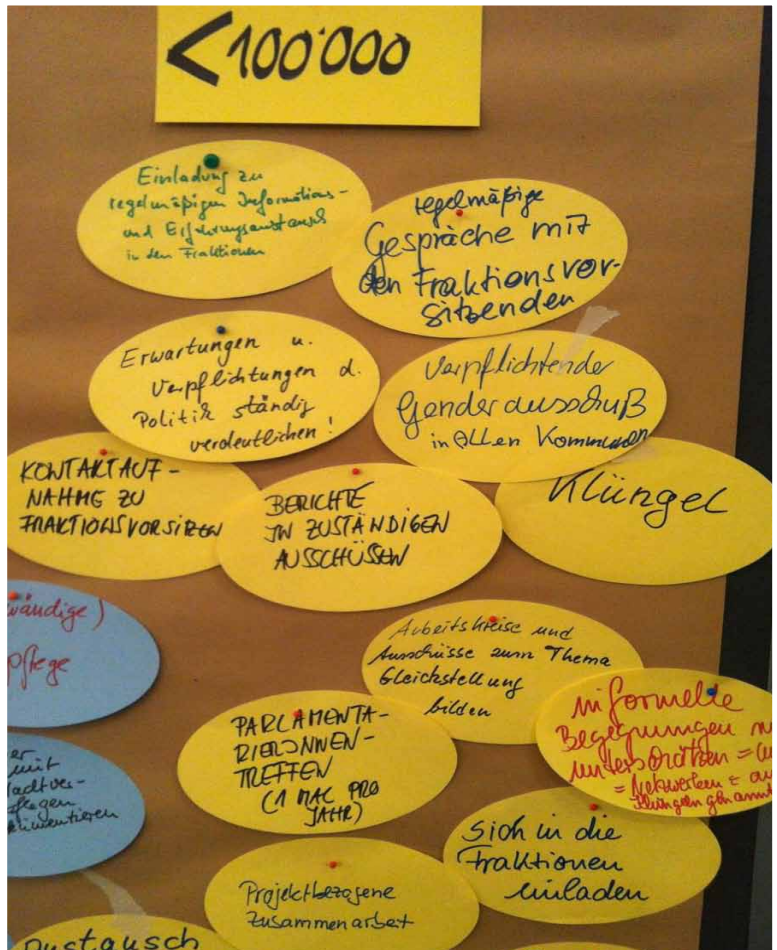 <100'000
Einladung zu
regelmäßigen Informations-
und Erfahrungsaustausch
in den Fraktionen
regelmäßige
Gespräche mit
den Fraktionsvor-
sitzenden
Erwartungen u.
Verpflichtungen d.
Politik ständig
verdeutlichen!
Verpflichtender
Genderausschuß
in ALLEN Kommunen
KONTAKTAUF-
NAHME ZU
FRAKTIONSVORSITZEN
BERICHTE
IN ZUSTÄNDIGEN
AUSSCHÜSSEN
Klüngel
wändige)
pflege
Arbeitskreise und
Ausschüsse zum Thema
Gleichstellung
bilden
PARLAMENTA-
RIERINNEN-
TREFFEN
(1 MAL PRO
JAHR)
informelle
Begegnungen n
unterschätzen =
= Netzwerken
Klüngeln genannt
er
mit
adtver-
pflegen
kumentieren
sich in die
Fraktionen
einladen
Projektbezogene
Zusammenarbeit
Austausch